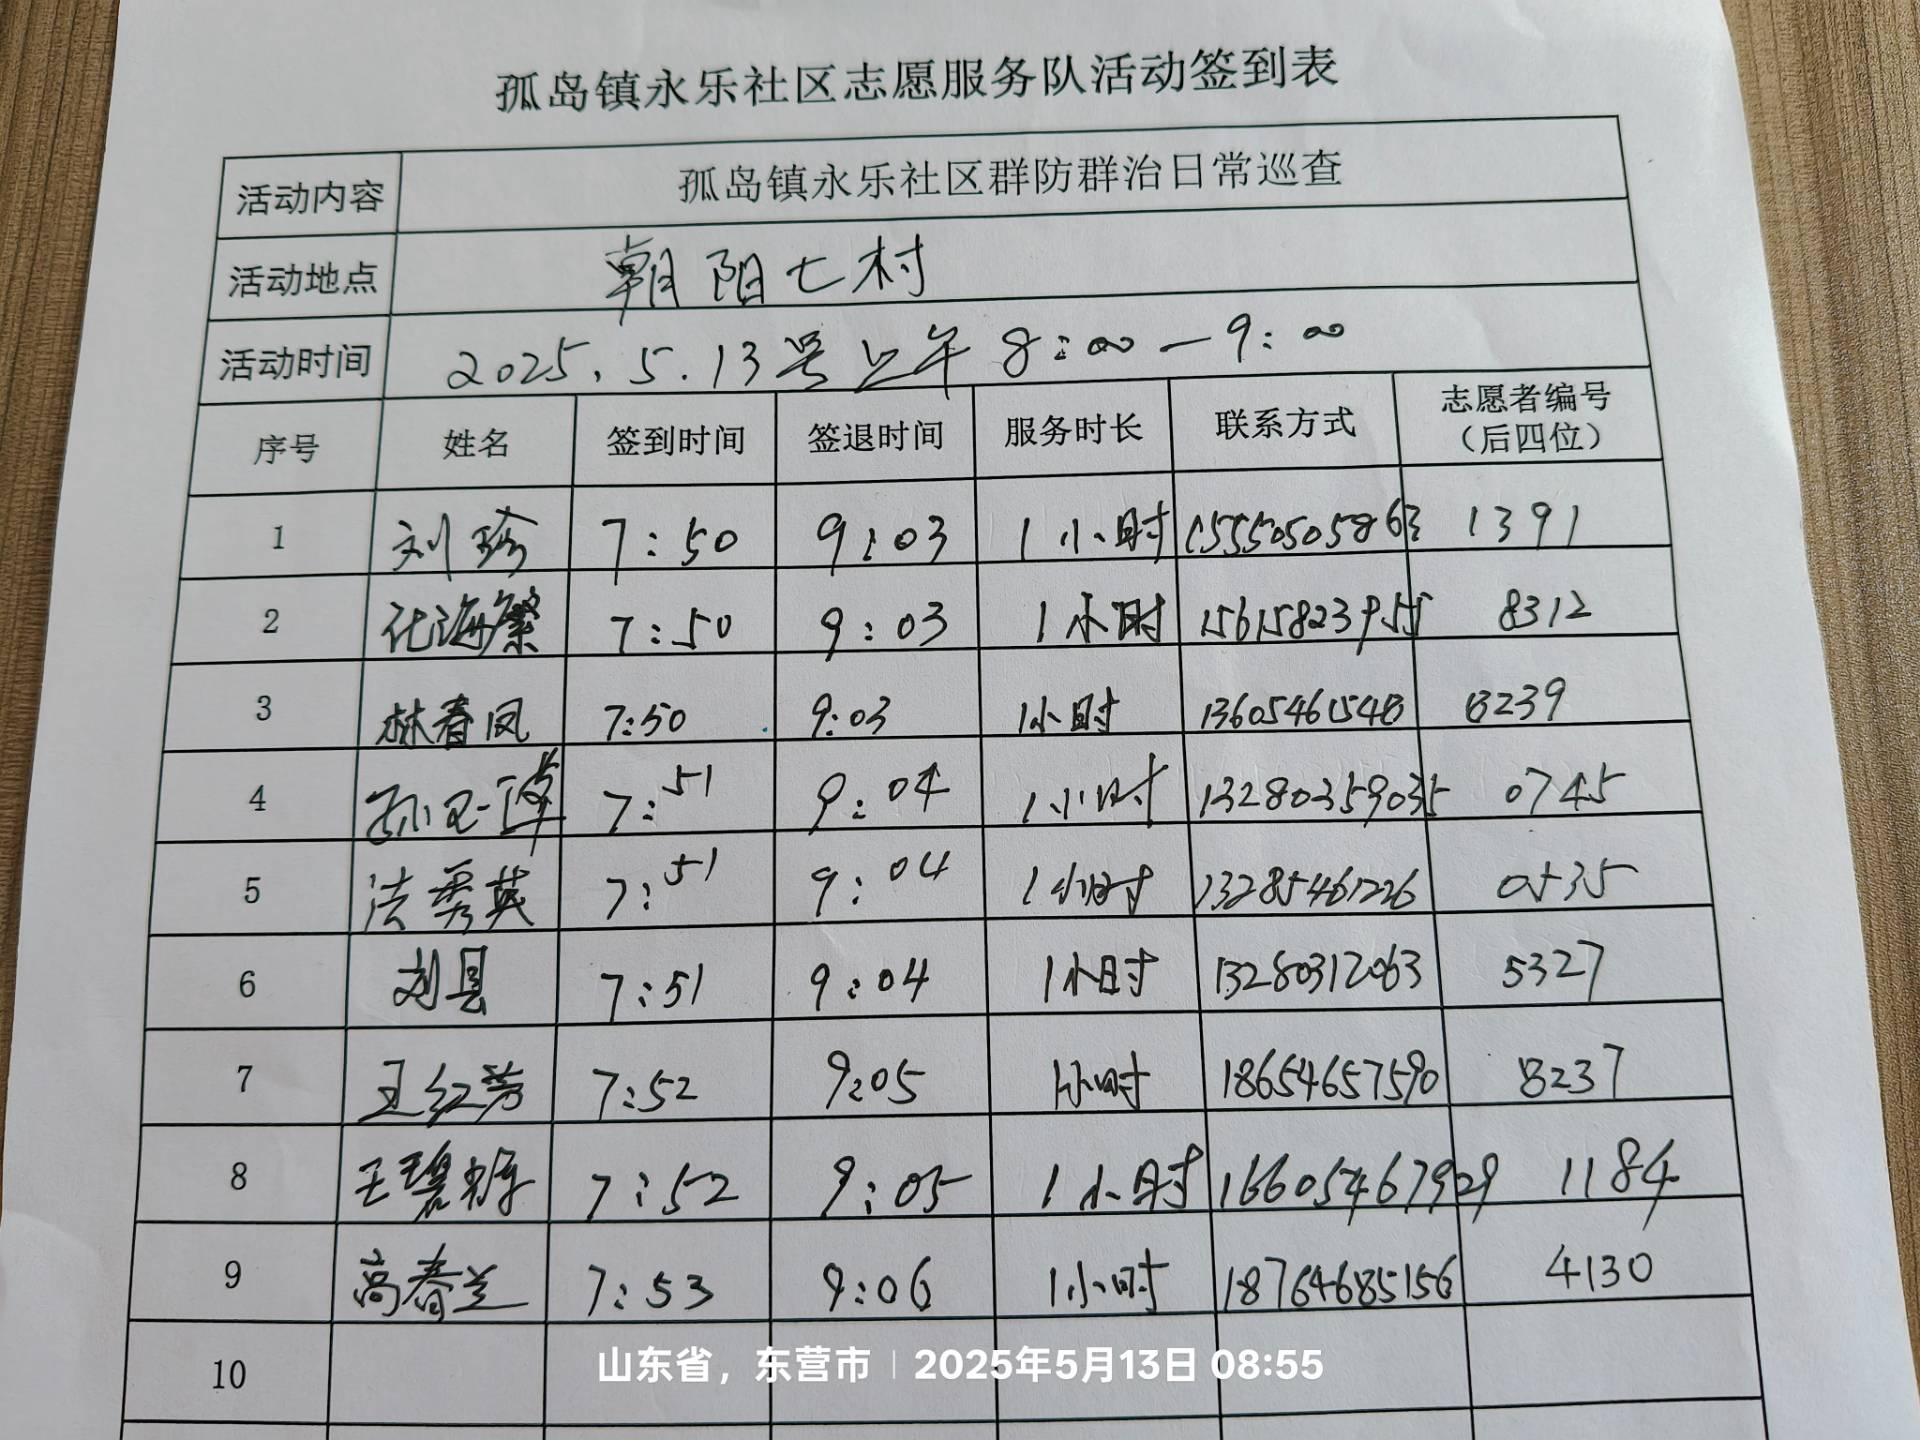 孤岛镇永乐社区志愿服务队活动签到表
活动内容 孤岛镇永乐社区群防群治日常巡查
活动地点 朝阳七村
活动时间 2025.5.13号上午8:00—9:00
序号 姓名 签到时间 签退时间 服务时长 联系方式 志愿者编号（后四位）
1 刘珍 7:50 9:03 1小时 15550505863 1391
2 化海繁 7:50 9:03 1小时 15615823955 8312
3 林春凤 7:50 9:03 1小时 13605461548 8239
4 孙 7:51 9:04 1小时 13280359035 0745
5 法秀英 7:51 9:04 1小时 13285461226 0535
6 刘县 7:51 9:04 1小时 13280312063 5327
7 王红芳 7:52 9:05 1小时 18654657590 8237
8 王碧 7:52 9:05 1小时 16605467929 1184
9 高春兰 7:53 9:06 1小时 18764685156 4130
10
山东省，东营市 2025年5月13日 08:55